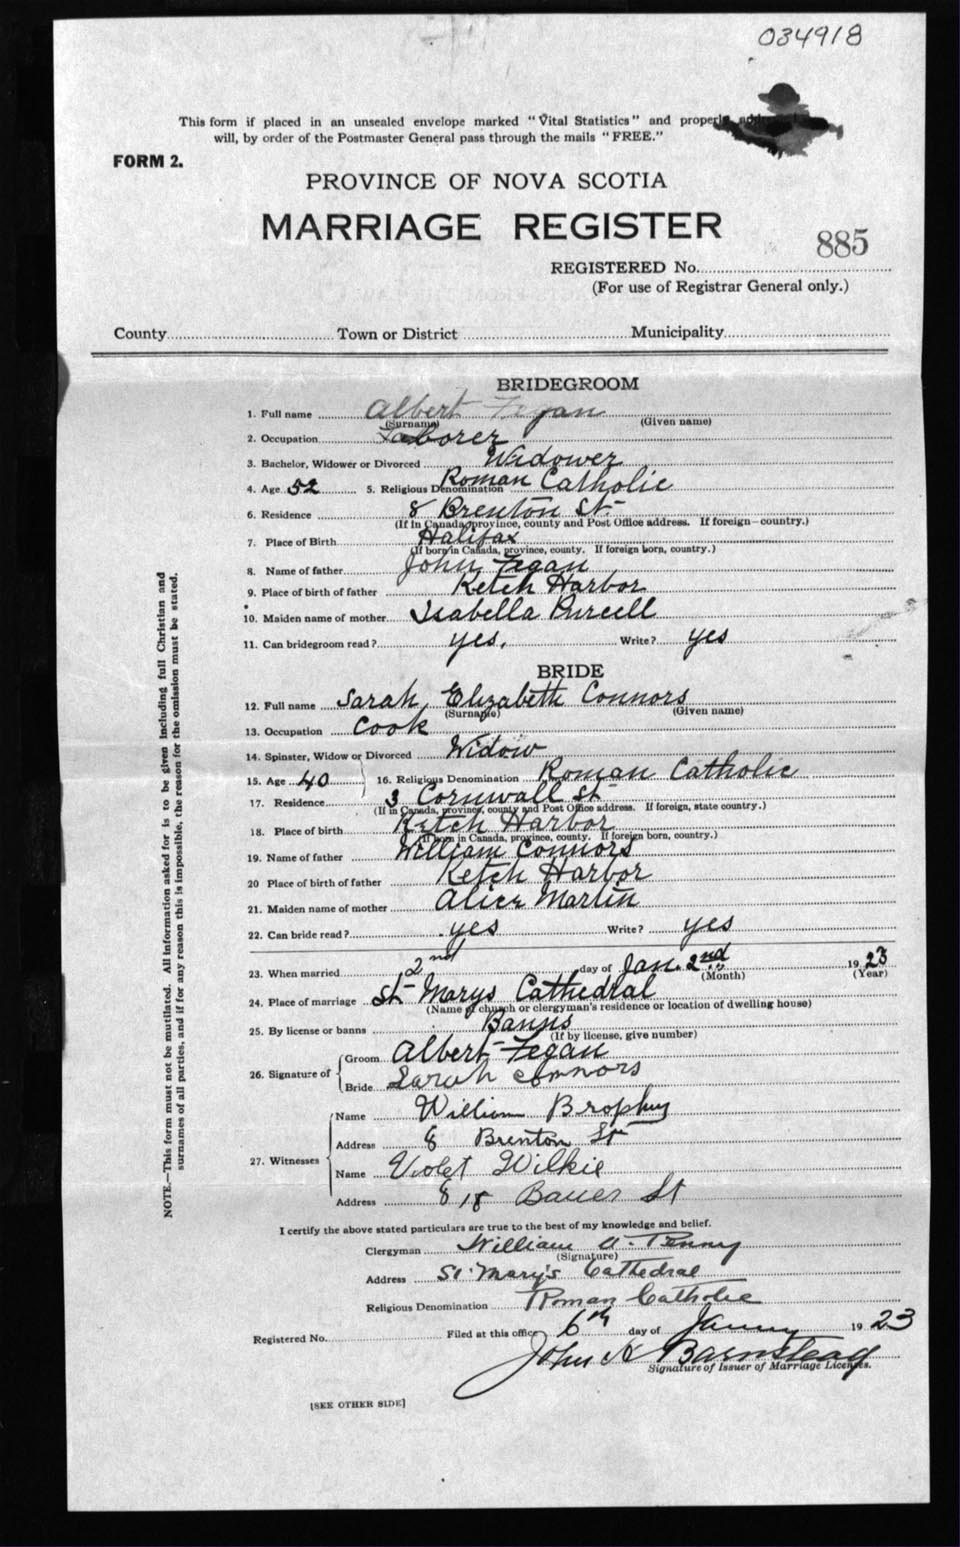 034918
This form if placed in an unsealed envelope marked "Vital Statistics" and properly
will, by order of the Postmaster General pass through the mails "FREE."
FORM 2.
PROVINCE OF NOVA SCOTIA
MARRIAGE REGISTER
885
REGISTERED No.
(For use of Registrar General only.)
County Town or District Municipality
BRIDEGROOM
1. Full name Albert Fegan
(Surname) (Given name)
2. Occupation Laborer
3. Bachelor, Widower or Divorced Widower
4. Age 52 5. Religious Denomination Roman Catholic
6. Residence 8 Brenton St
(If in Canada, province, county and Post Office address. If foreign—country.)
7. Place of Birth Halifax
(If born in Canada, province, county. If foreign born, country.)
8. Name of father John Fegan
9. Place of birth of father Ketch Harbor
10. Maiden name of mother Isabella Purcell
11. Can bridegroom read? yes. Write? yes
BRIDE
12. Full name Sarah Elizabeth Connors
(Surname) (Given name)
13. Occupation Cook
14. Spinster, Widow or Divorced Widow
15. Age 40 16. Religious Denomination Roman Catholic
17. Residence 3 Cornwall St
(If in Canada, province, county and Post Office address. If foreign, state country.)
18. Place of birth Ketch Harbor
(If born in Canada, province, county. If foreign born, country.)
19. Name of father William Connors
20 Place of birth of father Ketch Harbor
21. Maiden name of mother Alice Martin
22. Can bride read? yes Write? yes
23. When married 2nd day of Jan. 2nd 1923
(Month) (Year)
24. Place of marriage St Marys Cathedral
(Name of church or clergyman's residence or location of dwelling house)
25. By license or banns Banns
(If by license, give number)
26. Signature of
Groom Albert Fegan
Bride Sarah Connors
27. Witnesses
Name William Brophy
Address 8 Brenton St
Name Violet Wilkie
Address 818 Bauer St
I certify the above stated particulars are true to the best of my knowledge and belief.
Clergyman William A. Penny
(Signature)
Address St. Mary's Cathedral
Religious Denomination Roman Catholic
Registered No. Filed at this office 6th day of 1923
John A Barnstead
Signature of Issuer of Marriage Licenses.
[SEE OTHER SIDE]
NOTE.—This form must not be mutilated. All information asked for is to be given including full Christian and
surnames of all parties, and if for any reason this is impossible, the reason for the omission must be stated.